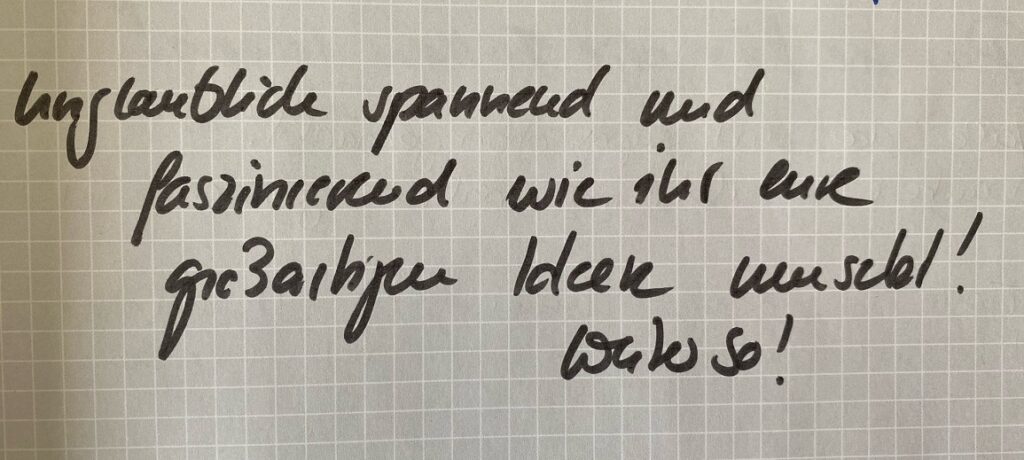 Unglaublich spannend und
faszinierend wie ihr eure
großartigen Ideen umsetzt!
Weiter so!